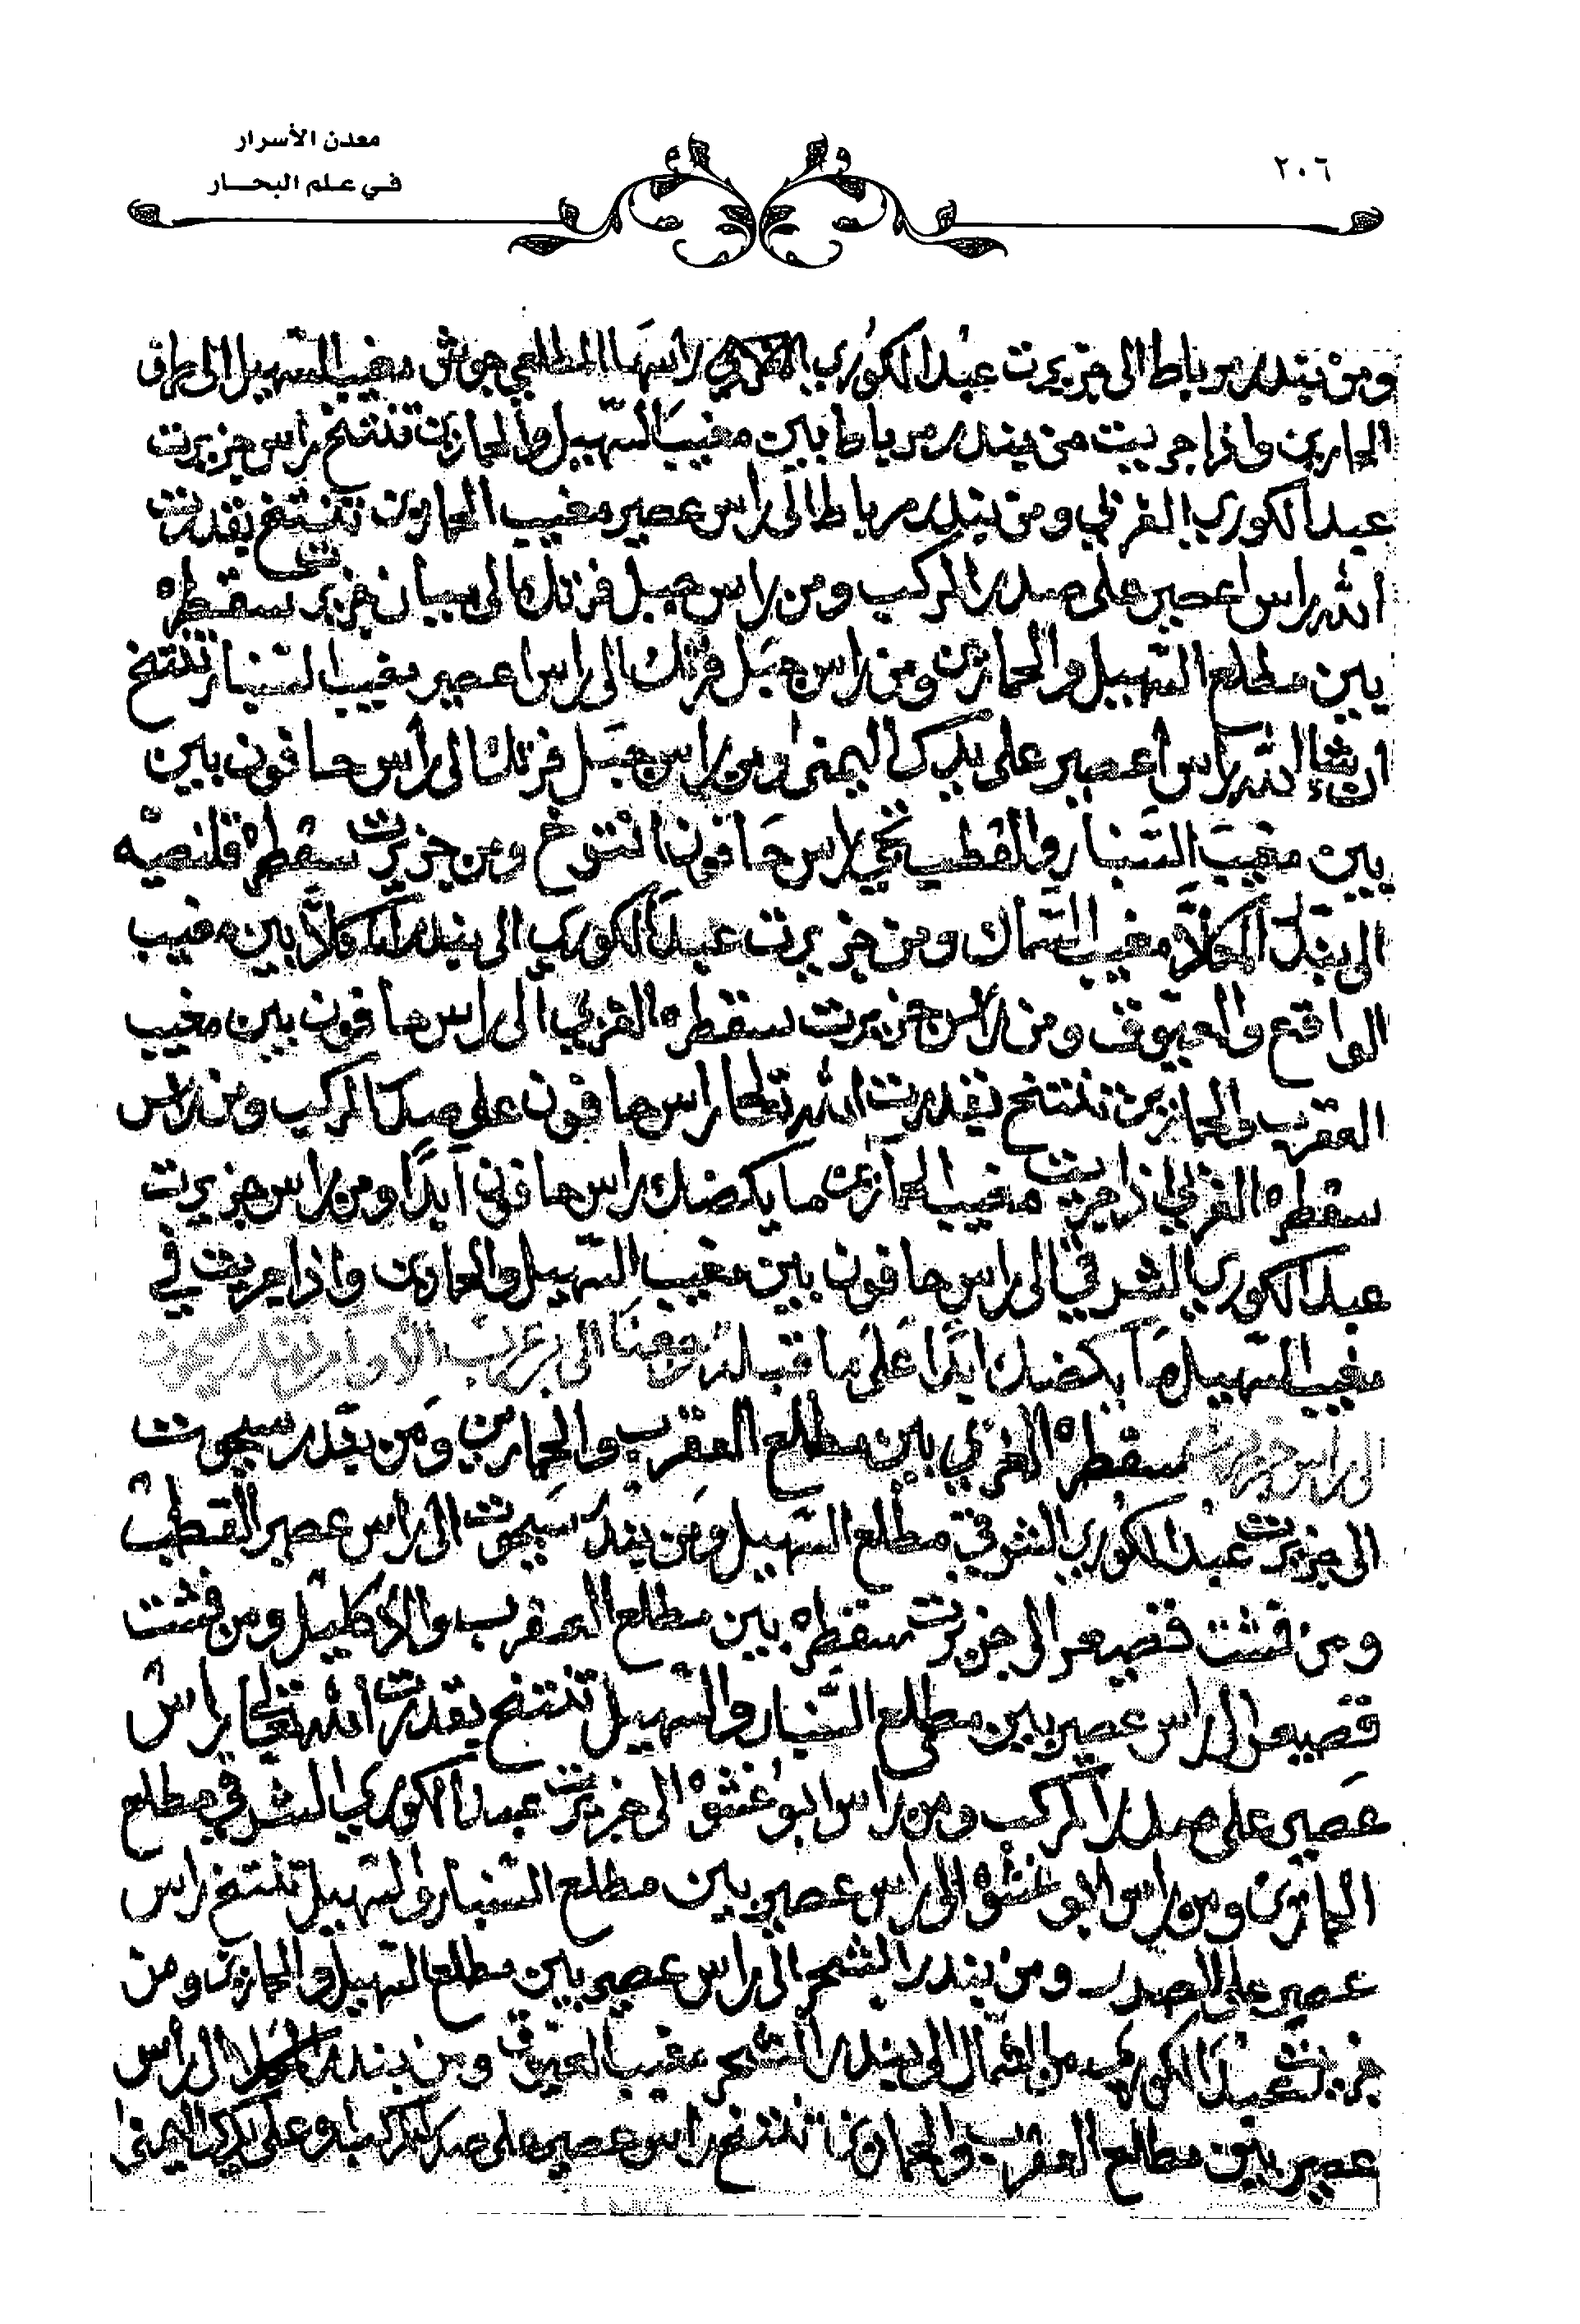 معدن الأسرار
في علم البحار
٢٠٦
ومن بندر مرباط الى جزيرت عبد الكوري راسها المطلعي جوش مغيب السهيل الى طرف
الحمارين واذا جريت من بندر مرباط بين مغيب السهيل والحمارين تنتخ راس جزيرت
عبد الكوري الغربي ومن بندر مرباط الى راس عصير مغيب الحمارين تنتخ بقدرت
الله راس اعصير على صدر المركب ومن راس جبل فرتك الى سيان جزيرت سقطره
بين مطلع السهيل والحمارين ومن راس جبل فرتك الى راس اعصير مغيب السنبار تنتخ
ان شاء الله راس اعصير على يدك اليمنى ومن راس جبل فرتك الى راس حافون بين
بين مغيب السنبار والقطب تجي راس حافون انتوخ ومن جزيرت سقطره قلنصيه
الى بندر المكلا مغيب السماك ومن جزيرت عبد الكوري الى بندر المكلا بين مغيب
الواقع والعيوق ومن راس جزيرت سقطره الغربي الى راس حافون بين مغيب
العقرب والحمارين تنتخ بقدرت الله تعالى راس حافون على صدر المركب ومن راس
سقطره الغربي اذا جريت مغيب الحمارين ما يكضك راس حافون أبدًا ومن راس جزيرت
عبد الكوري الشرقي الى راس حافون بين مغيب السهيل والحمارين واذا جريت في
مغيب السهيل ما يكضك ابدًا على ما قبله رجعنا الى بر عرب الأول من بندر سيحوت
الى راس جزيرت سقطره الغربي بين مطلع العقرب والحمارين ومن بندر سيحوت
الى جزيرت عبد الكوري الشرقي مطلع السهيل ومن بندر سيحوت الى راس عصير القطب
ومن قشت قصيعر الى جزيرت سقطره بين مطلع العقرب والاكليل ومن قشت
قصيعر الى راس عصير بين مطلع السنبار والسهيل تنتخ بقدرت الله تعالى راس
عصير على صدر المركب ومن راس ابو غشوه الى جزيرت عبد الكوري الشرقي مطلع
الحمارين ومن راس ابو غشوه الى راس عصير بين مطلع السنبار والسهيل تنتخ راس
عصير على الصدر ومن بندر الشحر الى راس عصير بين مطلع السهيل والحمارين ومن
جزيرت عبد الكوري من الشمال الى بندر الشحر مغيب العيوق ومن بندر المكلا الى راس
عصير بين مطلع العقرب والحمارين تنتخ راس عصير على صدر المركب وعلى يدك اليمنى